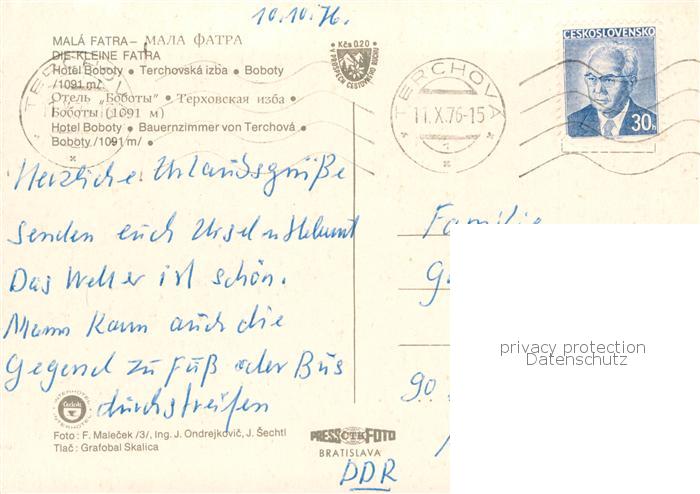 10.10.76.
MALÁ FATRA – МАЛА ФАТРА
DIE KLEINE FATRA
Hotel Boboty • Terchovská izba • Boboty
/1091 m/
Отель „Боботы" • Терховская изба •
Боботы (1091 м)
Hotel Boboty • Bauernzimmer von Terchová •
Boboty /1091 m/ •
Kčs 0.20
TERCHOVÁ
TERCHOVÁ
11.X.76-15
1
ČESKOSLOVENSKO
30h
Herzliche Urlaubsgrüße
senden euch Ursel u Helmut
Das Wetter ist schön.
Mann kann auch die
Gegend zu Fuß oder Bus
durchstreifen
Familie
G
90
DDR
privacy protection
Datenschutz
INTERHOTEL
Čedok
INTERHOTEL
Foto: F. Maleček /3/, Ing. J. Ondrejkovič, J. Šechtl
Tlač: Grafobal Skalica
PRESS ČTK FOTO
BRATISLAVA